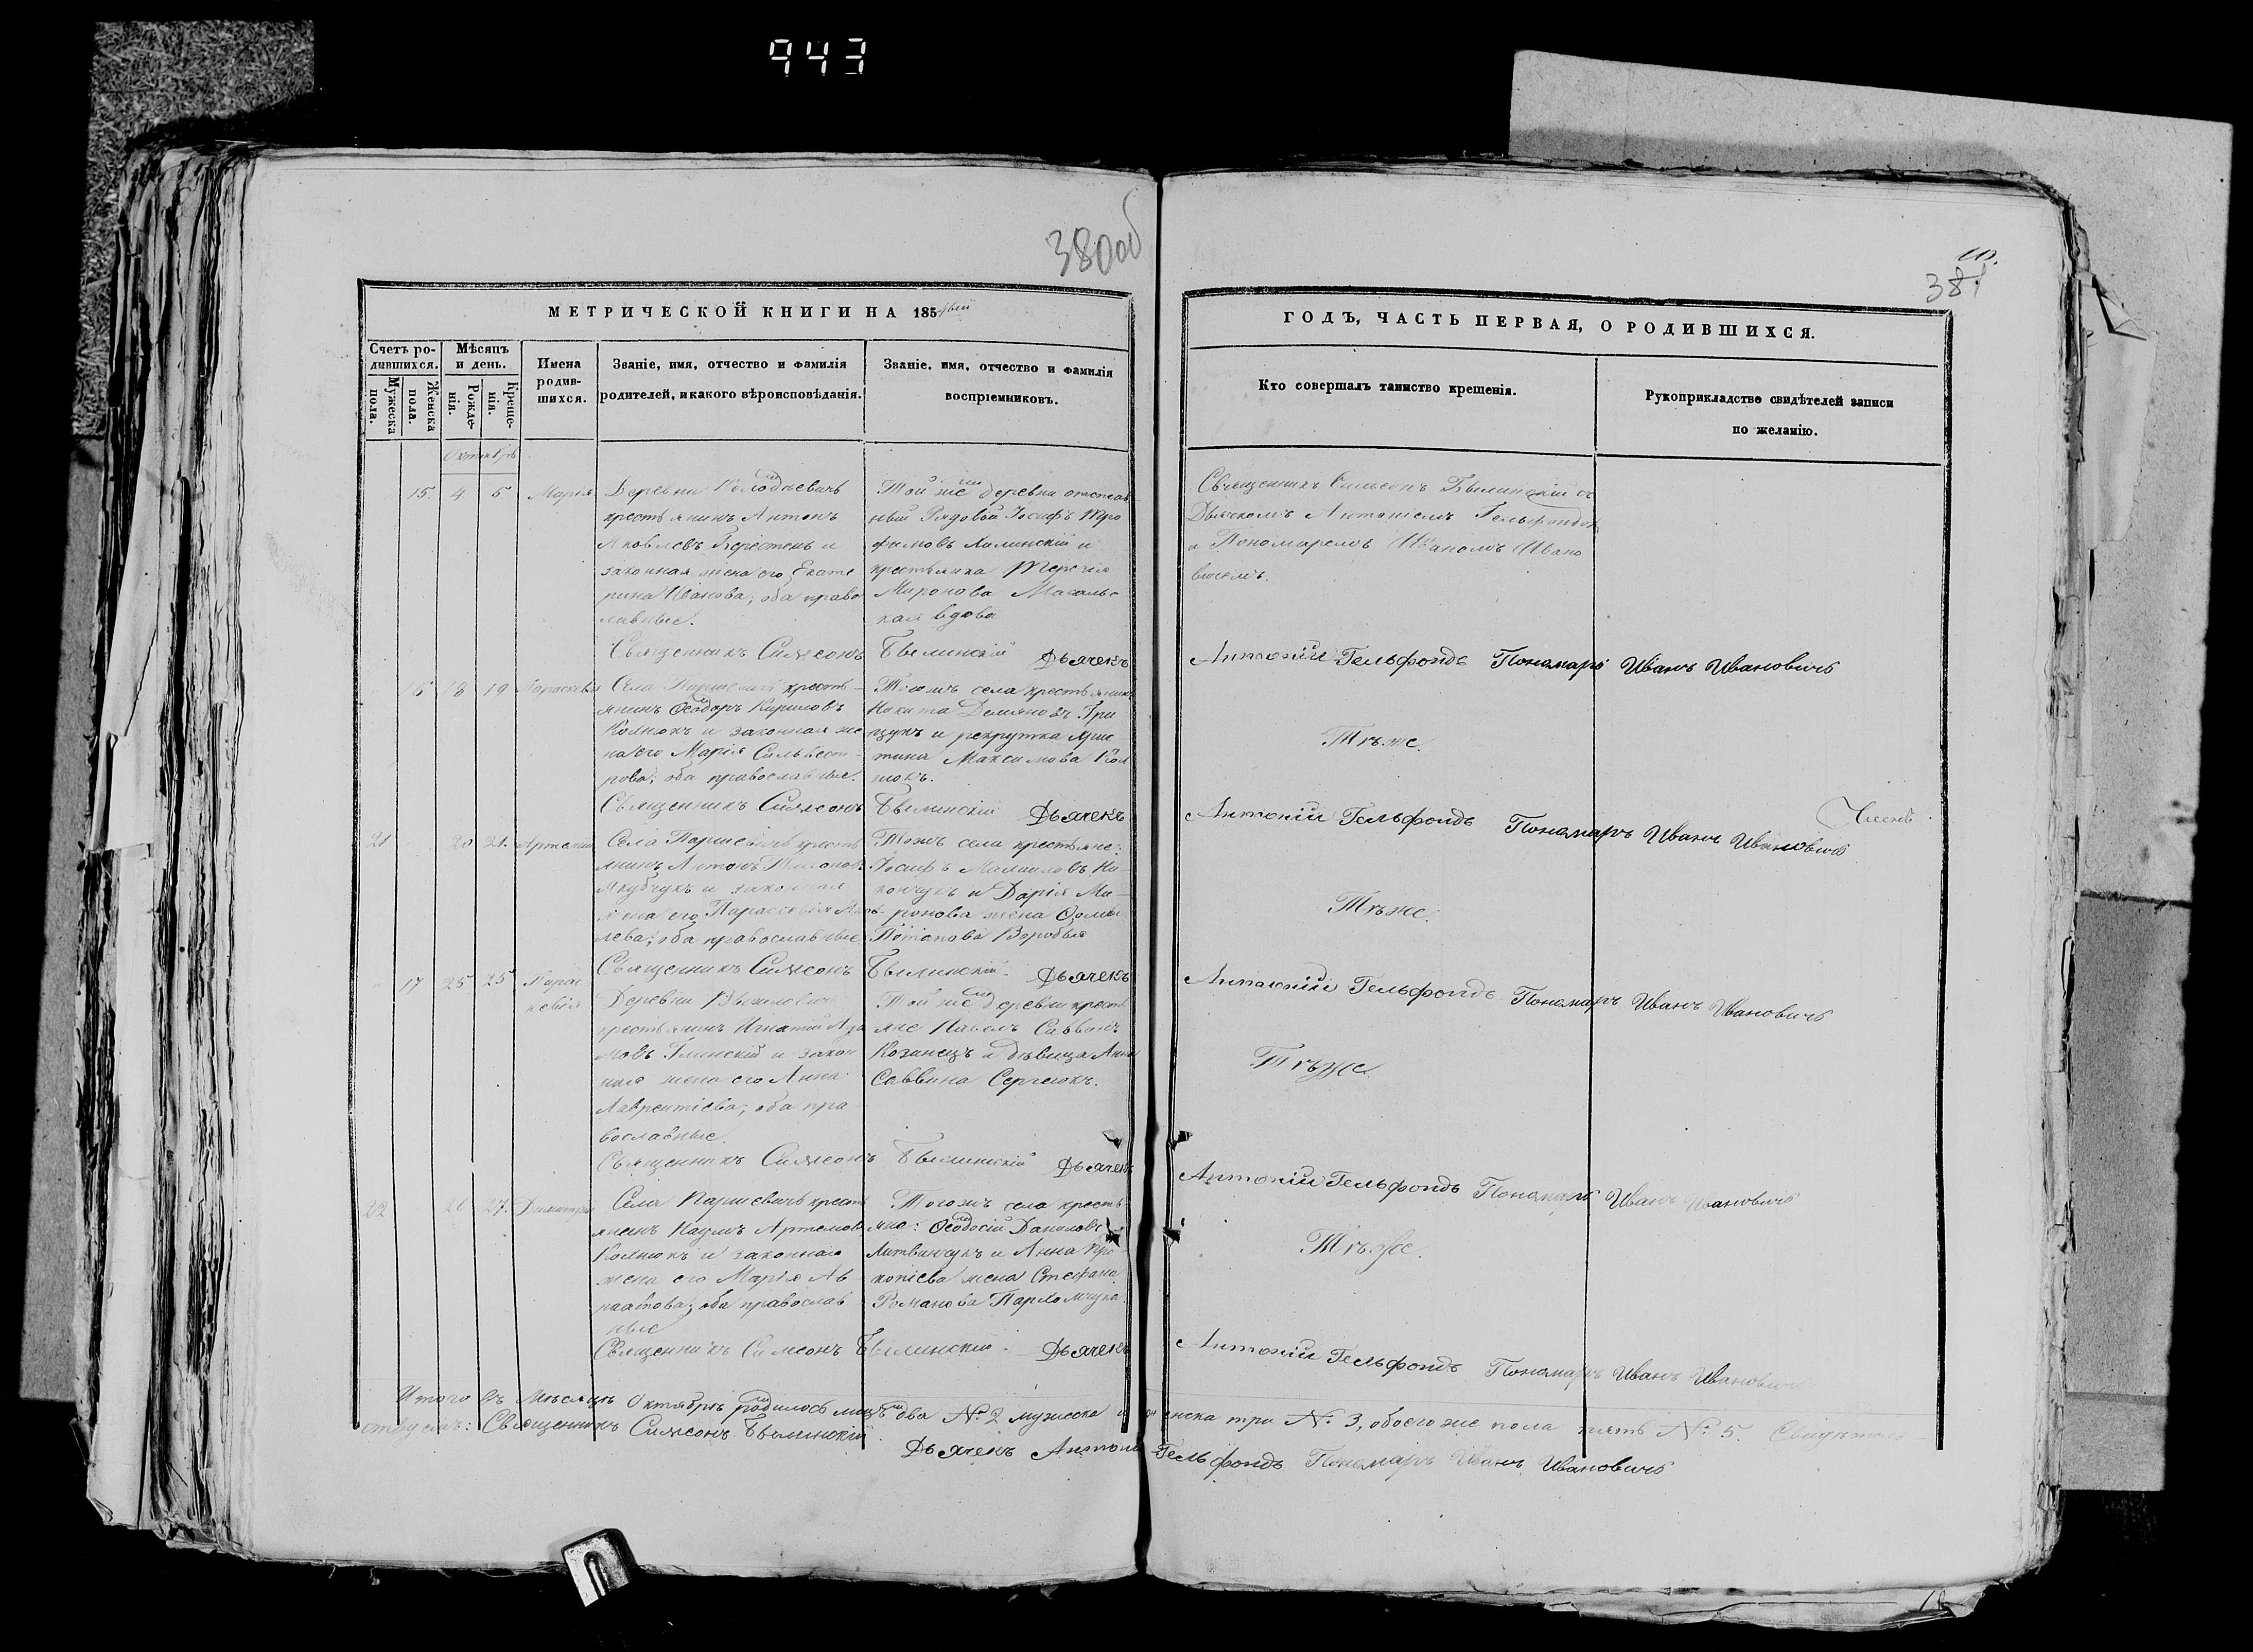 943
380об
381
МЕТРИЧЕСКОЙ КНИГИ НА 185
ГОДЪ, ЧАСТЬ ПЕРВАЯ, О РОДИВШИХСЯ.
Счетъ родившихся.
Мужеска пола.
Женска пола.
Мѣсяцъ и день.
Рожденія.
Крещенія.
Имена родившихся.
Званіе, имя, отчество и фамилія
родителей, и какого вѣроисповѣданія.
Званіе, имя, отчество и фамилія
воспріемниковъ.
Кто совершалъ таинство крещенія.
Рукоприкладство свидѣтелей записи
по желанію.
Октябрь
15. 4 5 Марія
Деревни
крестьянинъ Антонъ
Яковлевъ Берестень и
законная жена его Екате
рина Иванова, оба право
славные.
Той же деревни отстав
ный Рядовый Іосифъ Тро
фимовъ Хилинскій и
крестьянка
Миронова
кая вдова
Священникъ Симеонъ Былинскій съ
Дьячкомъ Антоніемъ Гельфондом
и Пономаремъ Иваномъ Ивано
вичемъ.
Священникъ Симеонъ Былинскій Дьячекъ Антоній Гельфондъ Пономарь Иванъ Ивановичъ
16 18 19 Параскевія
Села Паршевичъ кресть-
янинъ Ѳеодоръ Кириловъ
Колнокъ и законная же
на его Марія Сильвест-
рова; оба православные.
Тогожъ села крестьянинъ
Никита Демяновъ Гри
щукъ и рекрутка
Максимова Кол
нокъ.
Тѣже.
Священникъ Симеонъ Былинскій Дьячекъ Антоній Гельфондъ Пономарь Иванъ Ивановичъ
21 20 21. Артемій
Села Паршевичъ кресть
янинъ Антонъ
Якубчукъ и законная
жена его Параскевія Яков
лева; оба православные
Тогожъ села крестьяне:
Іосифъ
и Дарія Ми-
ронова жена Ѳомы
Потапова Воробья
Тѣже.
Священникъ Симеонъ Былинскій Дьячекъ Антоній Гельфондъ Пономарь Иванъ Ивановичъ
17 25 25 Парас
кевія
Деревни
крестьянинъ Игнатій Ада
мовъ Глинскій и закон
ная жена его Анна
Лаврентіева; оба пра-
вославные.
Той же деревни кресть
яне Павелъ Саввинъ
Козинецъ и дѣвица Анна
Саввина Сергеюкъ.
Тѣже.
Священникъ Симеонъ Былинскій Дьячекъ Антоній Гельфондъ Пономарь Иванъ Ивановичъ
22 26 27. Димитрій
Села Паршевичъ кресть
янинъ Наумъ Артемовъ
Колнокъ и законная
жена его Марія Ав
оба православ
ные
Тогожъ села кресть
яне: Ѳеодосій Даниловъ
Литвинчукъ и Анна Про
копіева жена Стефана
Романова Пархомчука.
Тѣже.
Священникъ Симеонъ Былинскій Дьячекъ Антоній Гельфондъ Пономарь Иванъ Ивановичъ
Итого въ Мѣсяцѣ Октябрѣ родилось два №. 2 мужеска и женска три №. 3, обоего же пола пять №. 5. Свидѣтель-
ствуемъ: Священникъ Симеонъ Былинскій
Дьячекъ Антоній Гельфондъ Пономарь Иванъ Ивановичъ